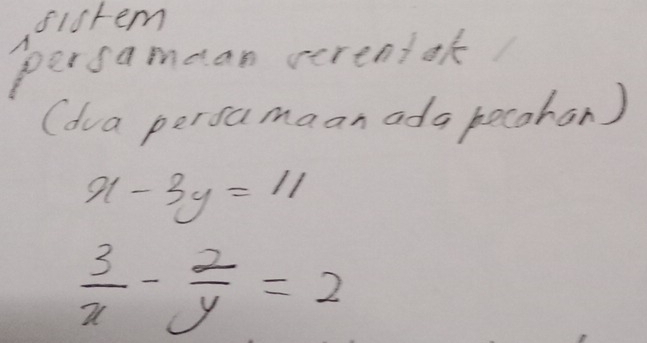 sistem
persamaan serentak
(dua persamaan ada pecahan)
x - 3y = 11
3/x - 2/y = 2